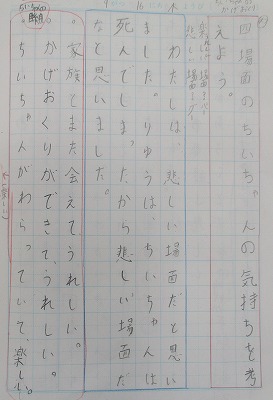 四場面のちいちゃんの気持ちを考
えよう。
楽しい場面
悲しい場面
わたしは、悲しい場面だと思い
ました。りゆうは、ちいちゃんは
死んでしまったから悲しい場面だ
なと思いました。
家族とまた会えてうれしい。
かげおくりができて、うれしい。
ちいちゃんがわらっていて、楽しい。